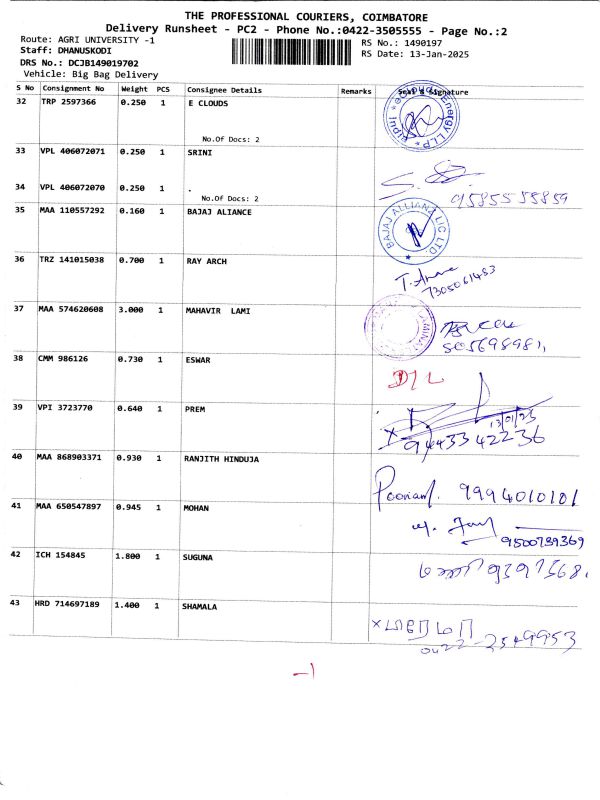 THE PROFESSIONAL COURIERS, COIMBATORE
Delivery Runsheet - PC2 - Phone No.:0422-3505555 - Page No.:2
Route: AGRI UNIVERSITY -1
RS No.: 1490197
Staff: DHANUSKODI
RS Date: 13-Jan-2025
DRS No.: DCJB149019702
Vehicle: Big Bag Delivery
S No Consignment No Weight PCS Consignee Details Remarks Seal & Signature
32 TRP 2597366 0.250 1 E CLOUDS
No.Of Docs: 2
33 VPL 406072071 0.250 1 SRINI
34 VPL 406072070 0.250 1 .
No.Of Docs: 2
9585558859
35 MAA 110557292 0.160 1 BAJAJ ALIANCE
BAJAJ ALLIANZ LIC LTD.
36 TRZ 141015038 0.700 1 RAY ARCH
7305061483
37 MAA 574620608 3.000 1 MAHAVIR LAMI
38 CMM 986126 0.730 1 ESWAR
D/L
39 VPI 3723770 0.640 1 PREM
13/01/25
9443342236
40 MAA 868903371 0.930 1 RANJITH HINDUJA
9994010101
41 MAA 650547897 0.945 1 MOHAN
9500739369
42 ICH 154845 1.800 1 SUGUNA
43 HRD 714697189 1.400 1 SHAMALA
0422-2549953
-1